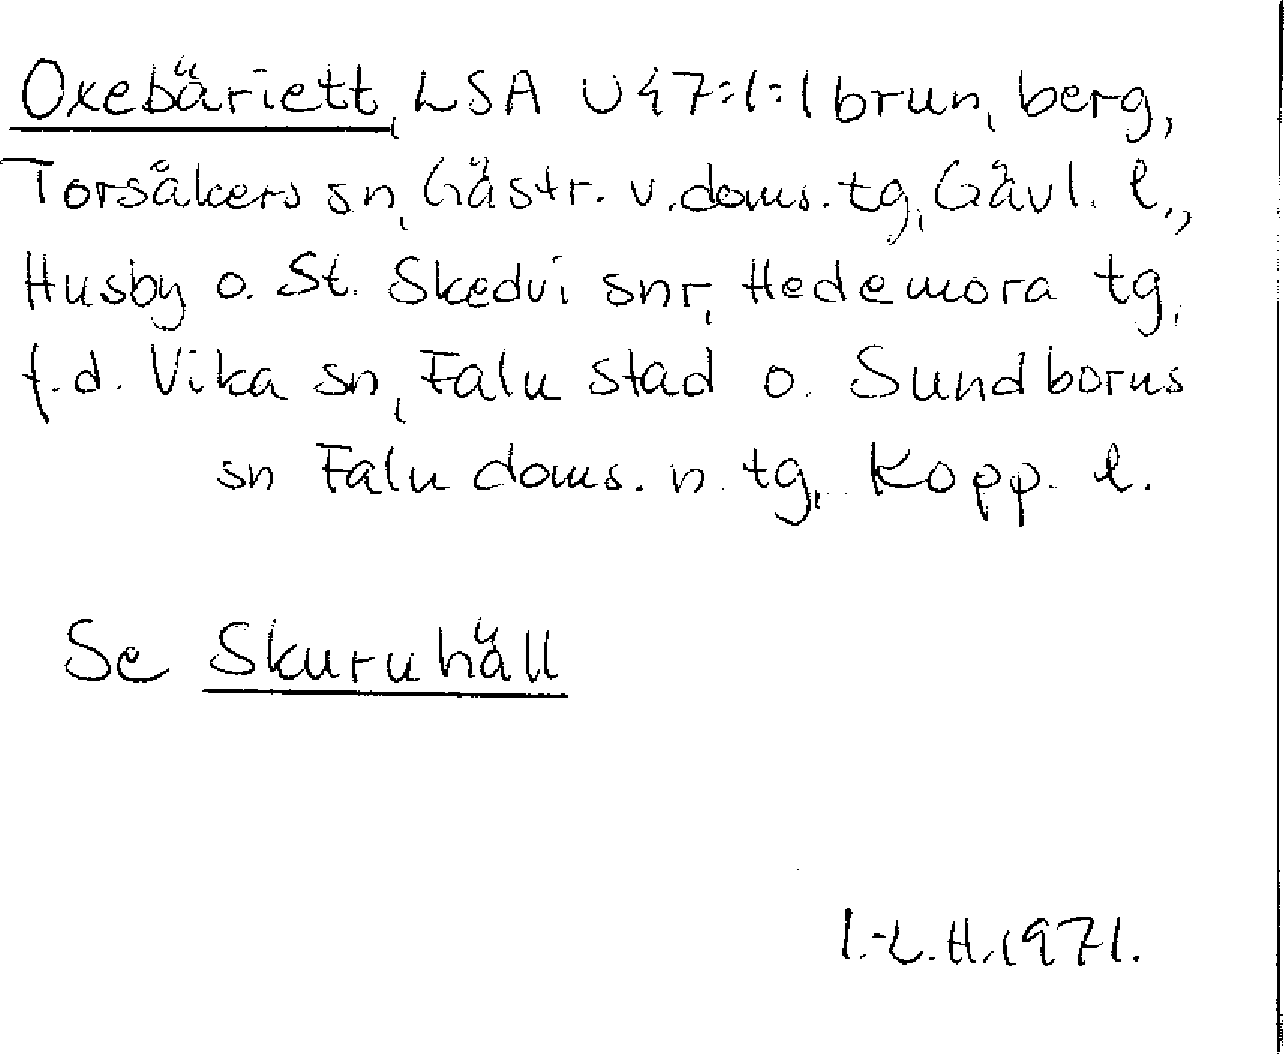 Oxebäriett, LSA U47:1:1 brun, berg,
Torsåkers sn, Gästr. v. doms. tg, Gävl. l.,
Husby o. St. Skedvi snr, Hedemora tg,
f.d. Vika sn, Falu stad o. Sundborns
sn Falu doms. n. tg, Kopp. l.
Se Skuruhäll
I.-L. H. 1971.